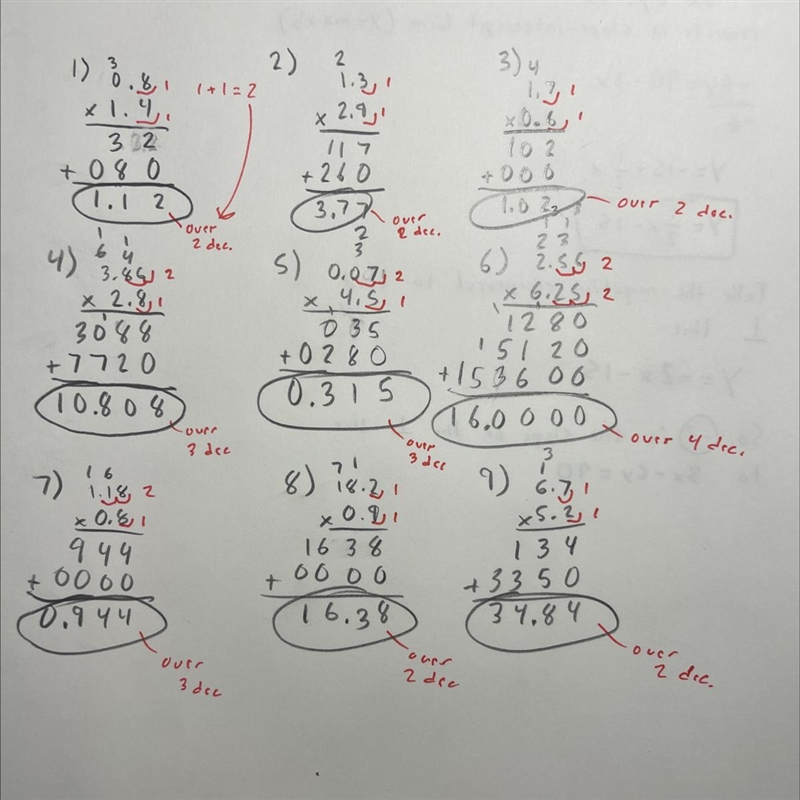 1) 3
0.8 1
x 1.4 1
32
+ 080
1.12
1+1=2
over
2 dec.
2) 2
1.3 1
x 2.9 1
117
+260
3.77
over
2 dec.
3) 4
1.7 1
x 0.6 1
102
+000
1.02
over 2 dec.
4) 1 1
6 4
3.86 2
x 2.8 1
3088
+7720
10.808
over
3 dec
5) 2
3
0.07 2
x 4.5 1
035
+0280
0.315
over
3 dec
6) 1 1
2 3
2.56 2
x 6.25 2
1280
5120
+153600
16.0000
over 4 dec.
7) 1 6
1.18 2
x 0.8 1
944
+0000
0.944
over
3 dec
8) 7 1
18.2 1
x 0.9 1
1638
+0000
16.38
over
2 dec
9) 3
1
6.7 1
x 5.2 1
134
+3350
34.84
over
2 dec.